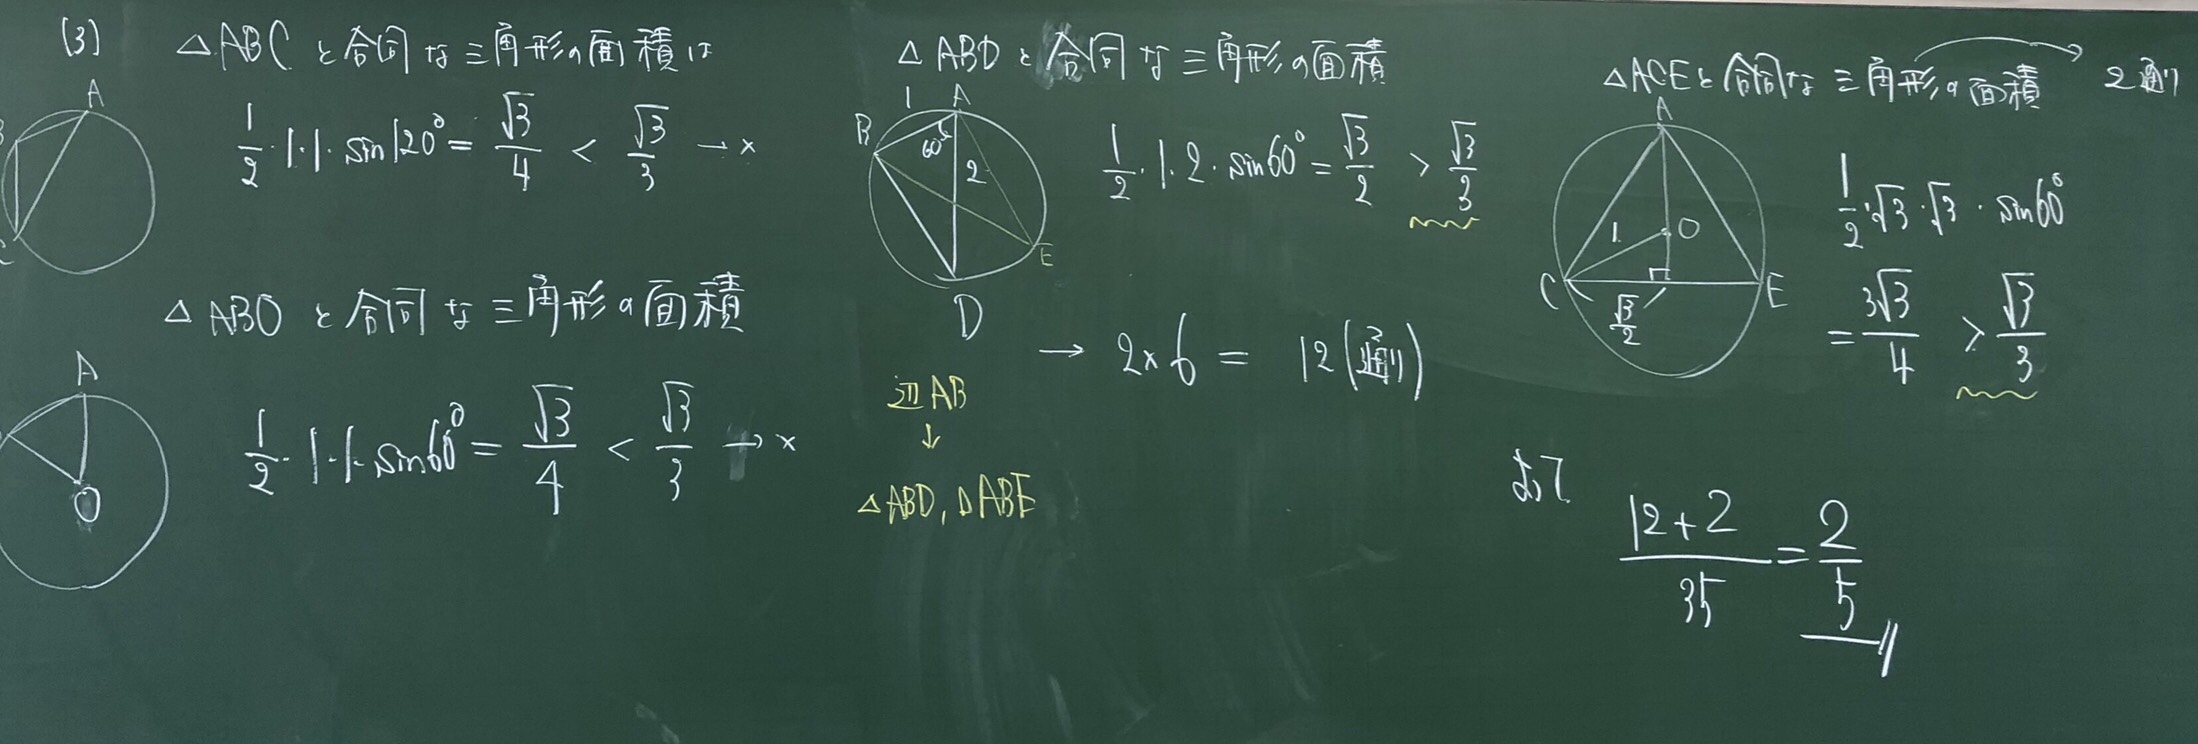 (3) △ABCと合同な三角形の面積は
A
1/2・1・1・sin120°= √3/4 < √3/3 → ×
△ABOと合同な三角形の面積
A
O
1/2・1・1・sin60°= √3/4 < √3/3 → ×
△ABDと合同な三角形の面積
1 A
B 60° 2
E
D
1/2・1・2・sin60°= √3/2 > √3/3
→ 2×6 = 12(通り)
辺AB
↓
△ABD, △ABE
△ACEと合同な三角形の面積 → 2通り
A
1 O
C √3/2 E
1/2・√3・√3・sin60°
= 3√3/4 > √3/3
よって
12+2/35 = 2/5